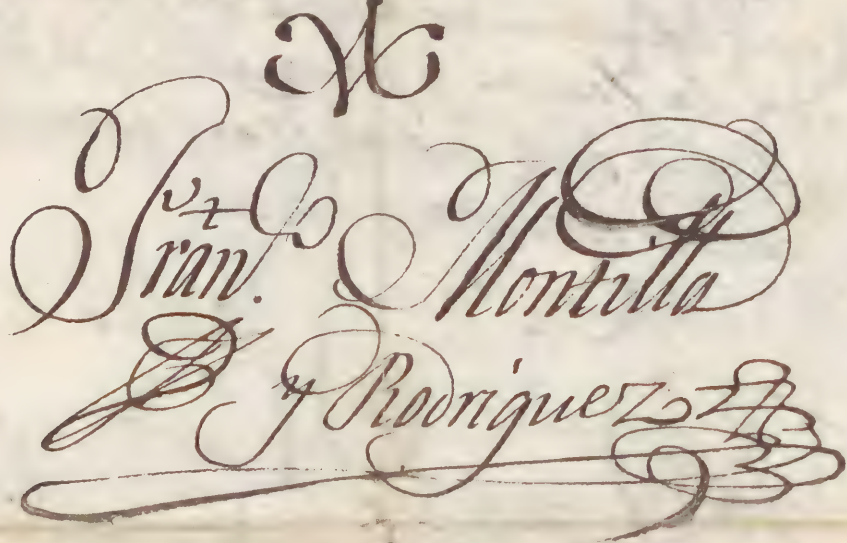 Fran.co Montilla
y Rodriguez